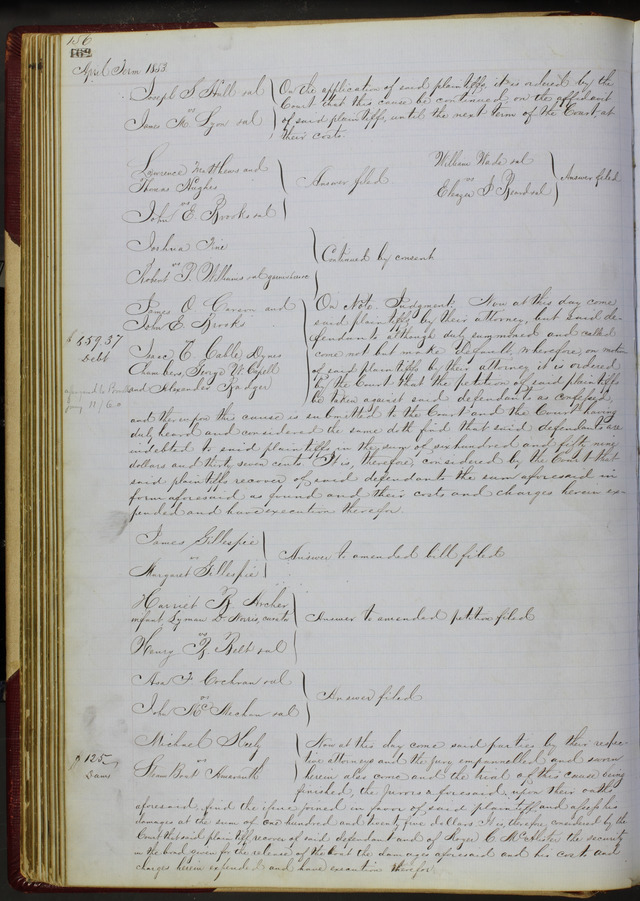 156
162
April Term 1853
Joseph S Hull et al
vs
James H. Lyon et al
On the application of said plaintiffs, it is ordered by the
Court that this cause be continued, on the affidavit
of said plaintiffs, until the next term of the Court, at
their costs.
Lawrence Matthews and
Thomas Hughes
vs
John E Brooks et al
Answer filed.
William Wade et al
vs
Answer filed
Joshua
vs
Robert P. Williams et al garnishees
Continued by consent
James O and
John E Brooks
vs
Isaac T. Cable,
Chambers, W.
and Alexander Badger
$659.37
Debt
On Note. Judgment. Now at this day come
said plaintiffs by their attorney, but said de-
fendants although duly summoned and called
come not but make Default, Wherefore, on motion
of said plaintiffs by their attorney it is ordered
by the Court that the petition of said plaintiffs
be taken against said defendants as confessed,
and thereupon the cause is submitted to the Court and the Court having
duly heard and considered the same doth find that said defendants are
indebted to said plaintiffs in the sum of six hundred and fifty nine
dollars and thirty seven cents. It is, therefore, considered by the Court that
said plaintiffs recover of said defendants the sum aforesaid in
form aforesaid as found and their costs and charges herein ex-
pended and have execution therefor.
James Gillespie
vs
Margaret Gillespie
Answer to amended bill filed
Harriet B Archer
infant Lyman D Norris, curator
vs
Henry B. Belt et al
Answer to amended petition filed
Asa F Cochran et al
vs
John Mc Mechan et al
Answer filed
Michael
vs
Steam Boat Amaranth
$125
Dams
Now at this day come said parties by their respec-
tive attorneys and the jury empannelled and sworn
herein also come and the trial of this cause being
finished, the Jurors aforesaid, upon their oaths
aforesaid, find the issue joined in favor of said plaintiff and assess his
damages at the sum of one hundred and twenty five dollars It is, therefore, considered by the
Court that said plaintiff recover of said defendant and of Roger C McAllister the security
in the bond given for the release of the boat the damages aforesaid and his costs and
charges herein expended and have execution therefor